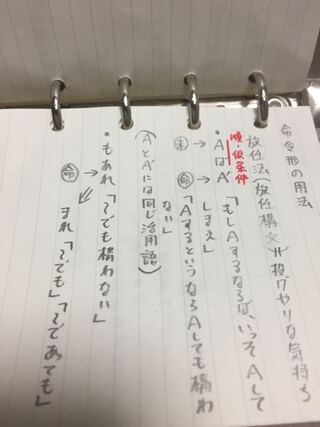 命令形の用法
放任法(放任構文)※投げやりな気持ち
順・仮条件
・AはA′「もしAするならば、いっそAして
未→命 しまえ」
「AするというならAしても構わ
ない」
(AとA′には同じ活用語)
・もあれ「〜でも構わない」
→命
まれ「〜でも」「〜であても」